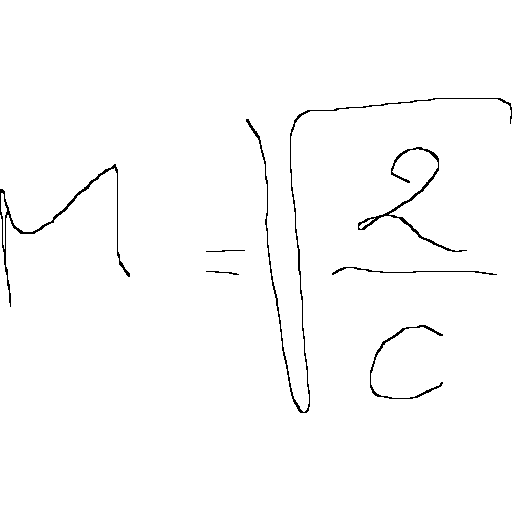 M = √(2/c)